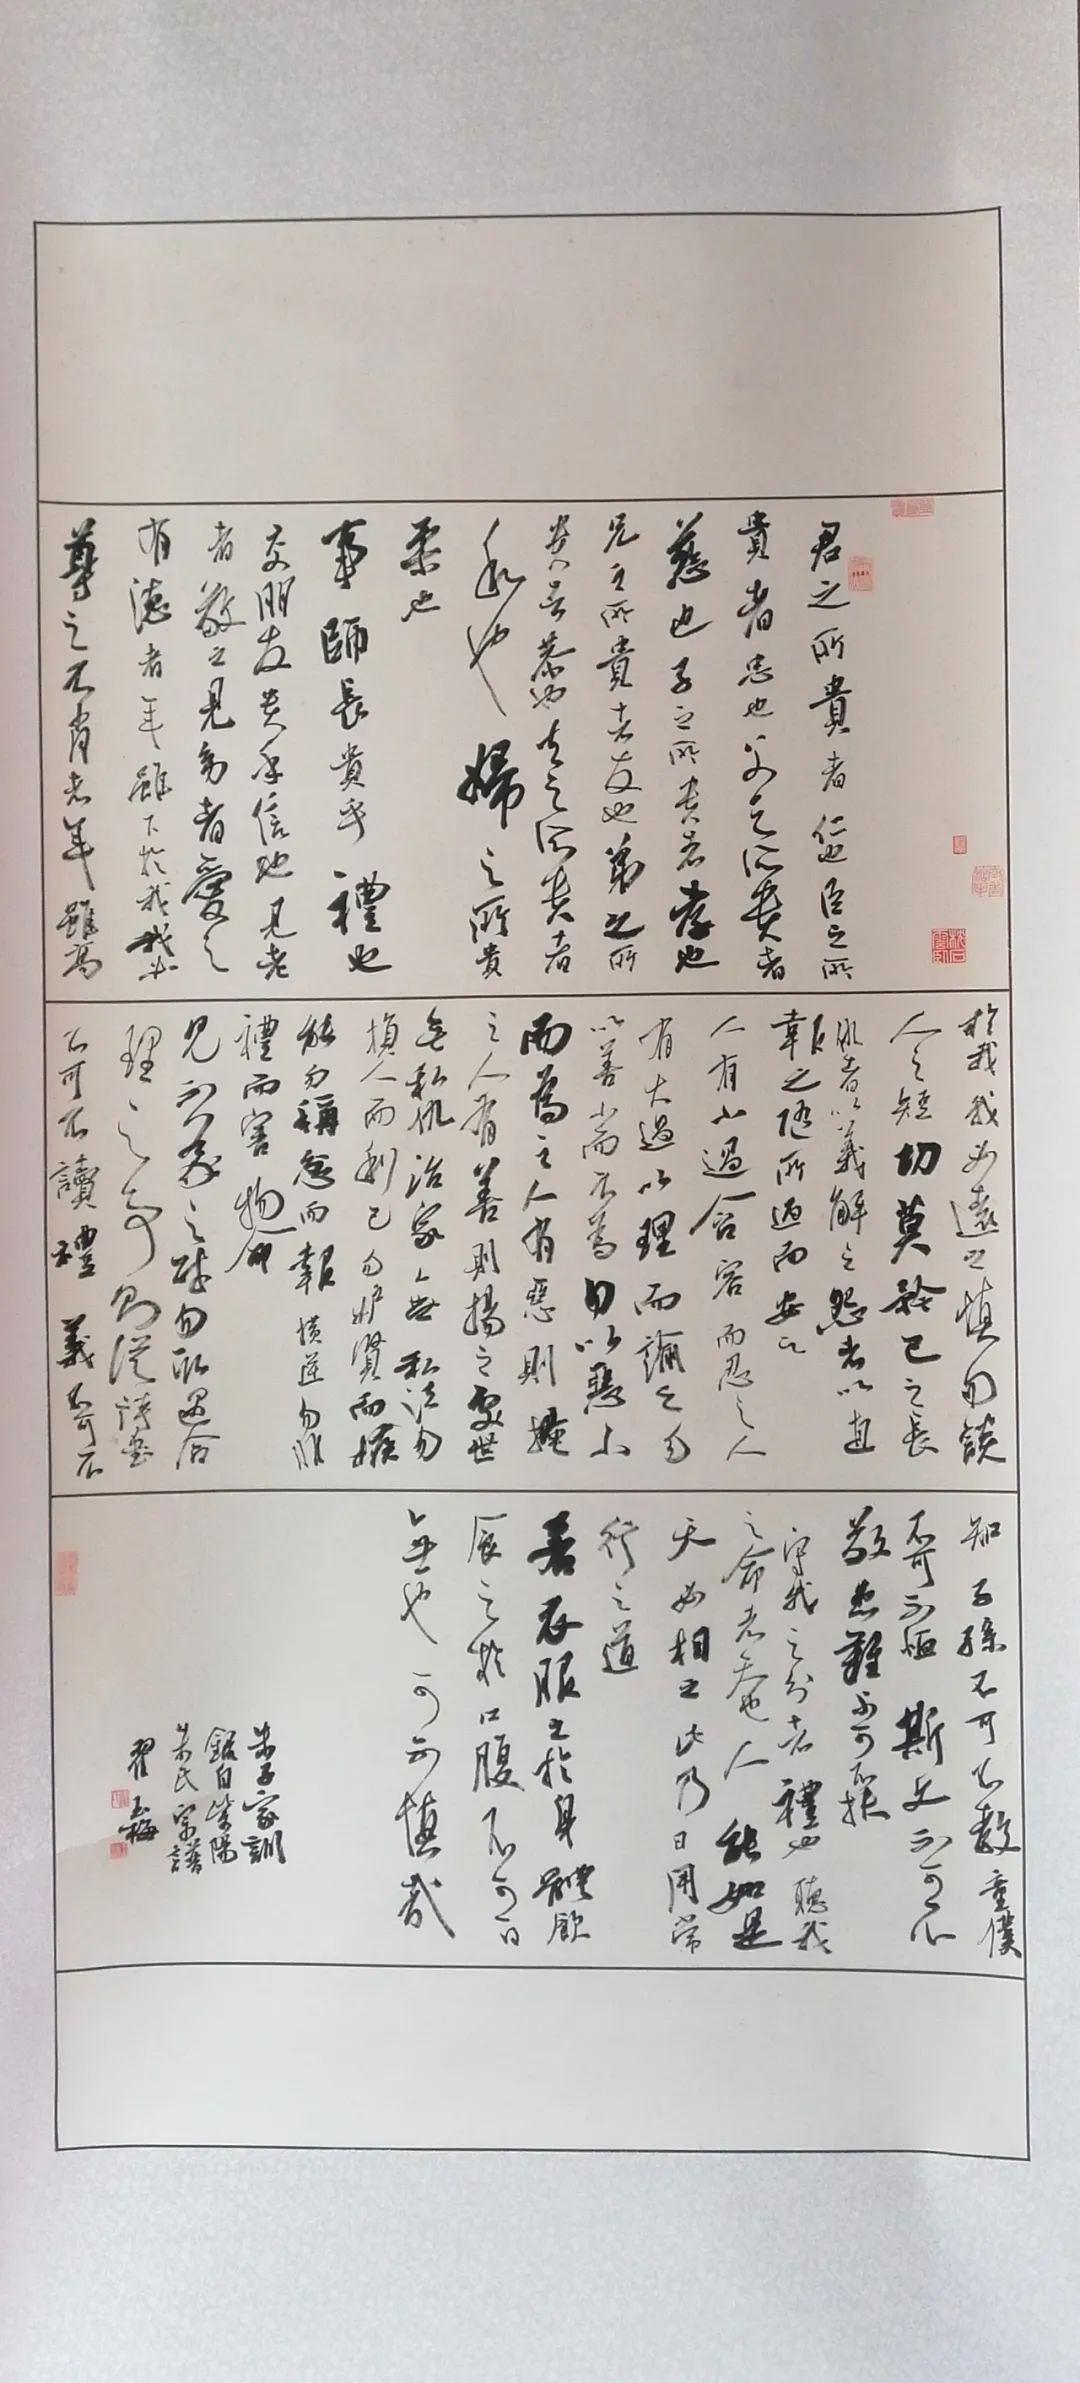 君之所貴者仁也臣之所
貴者忠也父之所貴者
慈也子之所貴者孝也
兄之所貴者友也弟之所
貴者恭也夫之所貴者
和也婦之所貴
柔也
事師長貴乎禮也
交朋友貴乎信也見老
者敬之見幼者愛之
有德者年雖下於我我必
尊之不肖者年雖高
於我我必遠之慎勿談
人之短切莫矜己之長
仇者以義解之怨者以直
報之隨所遇而安之
人有小過含容而忍之人
有大過以理而諭之勿
以善小而不為勿以惡小
而為之人有惡則掩
之人有善則揚之處世
無私仇治家無私法勿
損人而利己勿妒賢而嫉
能勿稱忿而報橫逆勿非
禮而害物命
見不義之財勿取遇合
理之事則從詩書
不可不讀禮義不可不
知子孫不可不教童僕
不可不恤斯文不可不
敬患難不可不扶
守我之分者禮也聽我
之命者天也人能如是
天必相之此乃日用常
行之道
若衣服之於身體飲
食之於口腹不可一日
無也可不慎哉
朱子家訓
錄自紫陽
朱氏宗譜
翟梅